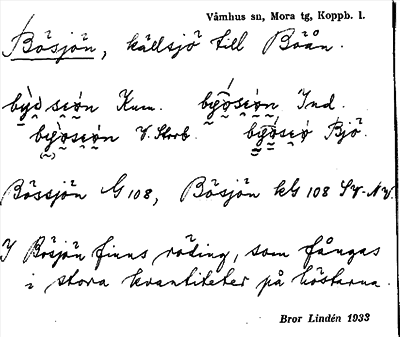 Våmhus sn, Mora tg, Koppb. l.
Bösjön, källsjö till Böån.
Knm. Ind.
V. Storb. Bjö.
Bössjön G 108, Bösjön kG 108 SV-NV.
I Bösjön finns röding, som fångas
i stora kvantiteter på höstarna.
Bror Lindén 1933